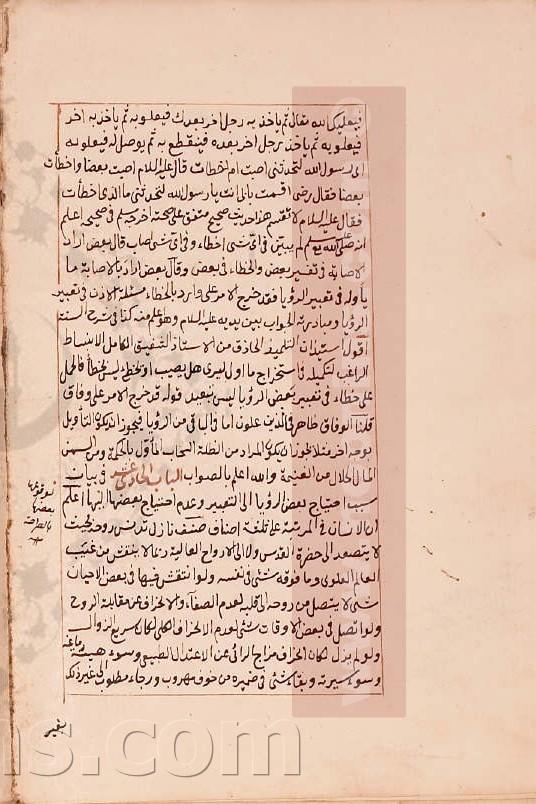 فيعليك الله تعالى ثم يأخذ به رجل آخر بعدك فيعلو به ثم يأخذ به آخر
فيعلو به ثم يأخذ رجل آخر بعده فينقطع به ثم يوصل له فيعلو به
اى رسول الله لتحدثنى اصبت ام اخطأت قال عليه السلام اصبت بعضا واخطأت
بعضا فقال رضى اقسمت بابى انت يا رسول الله لتحدثنى ما الذى اخطأت
فقال عليه السلام لا تقسم هذا حديث صحيح متفق على صحته اخرجه مسلم فى صحيحه اعلم
انه صلى الله عليه وسلم لم يبين فى اى شئ اخطاء وفى اى شئ اصاب قال بعض اراد
الاصابة فى تفسير بعض والخطاء فى بعض وقال بعض اراد بالاصابة ما
يأوله فى تعبير الرؤيا فقد خرج الامر على واراد بالخطاء مسئلة الاذن فى تعبير
الرؤيا ومبادرته الجواب بين يديه عليه السلام وهو اعلم منه كذا فى شرح السنة
اقول استيذان التلميذ الحاذق من الاستاذ الشفيق الكامل الانبساط
الراغب لتكميله فى استخراج ما اول ليرى هل يصيب او يخطاء ليس بخطأ فالحمل
على خطاء فى تعبير بعض الرؤيا ليس ببعيد قوله قد خرج الامر على وفاق
قلنا الوفاق ظاهر فى الذين علون اما فى الباقى من الرؤيا فيجوز ان يكون التأويل
بوجه آخر مثلا يجوز ان يكون المراد من الظلة السحاب المأول بالحكمة ومن السمن
المال الحلال من الغنيمة والله اعلم بالصواب الباب الحادى عشر فى بيان
سبب احتياج بعض الرؤيا الى التعبير وعدم احتياج بعضها اليها اعلم
ان الانسان فى المرتبة على ثلثة اصناف صنف نازل تدنس روحه بحيث
لا يتصعد الى حضرة القدس ولا الى الارواح العالية دائما لا ينتقش من غيب
العالم العلوى وما فوقه شئ فى نفسه ولو انتقش فيها فى بعض الاحيان
شئ لا يتصل من روحه الى قلبه لعدم الصفاء والانحراف عن مقابلة الروح
ولو اتصل فى بعض الاوقات شئ لعدم الانحراف الكلى لكان سريع الزوال
ولو لم يزل لكان انحراف مزاج الرائى عن الاعتدال الطبيعى وسوء هيئة دماغه
وسوء سيرته وبقاء شئ فى ضميره من خوف مهروب ورجاء مطلوب الى غير ذلك
بعضها
بغير
ns.com